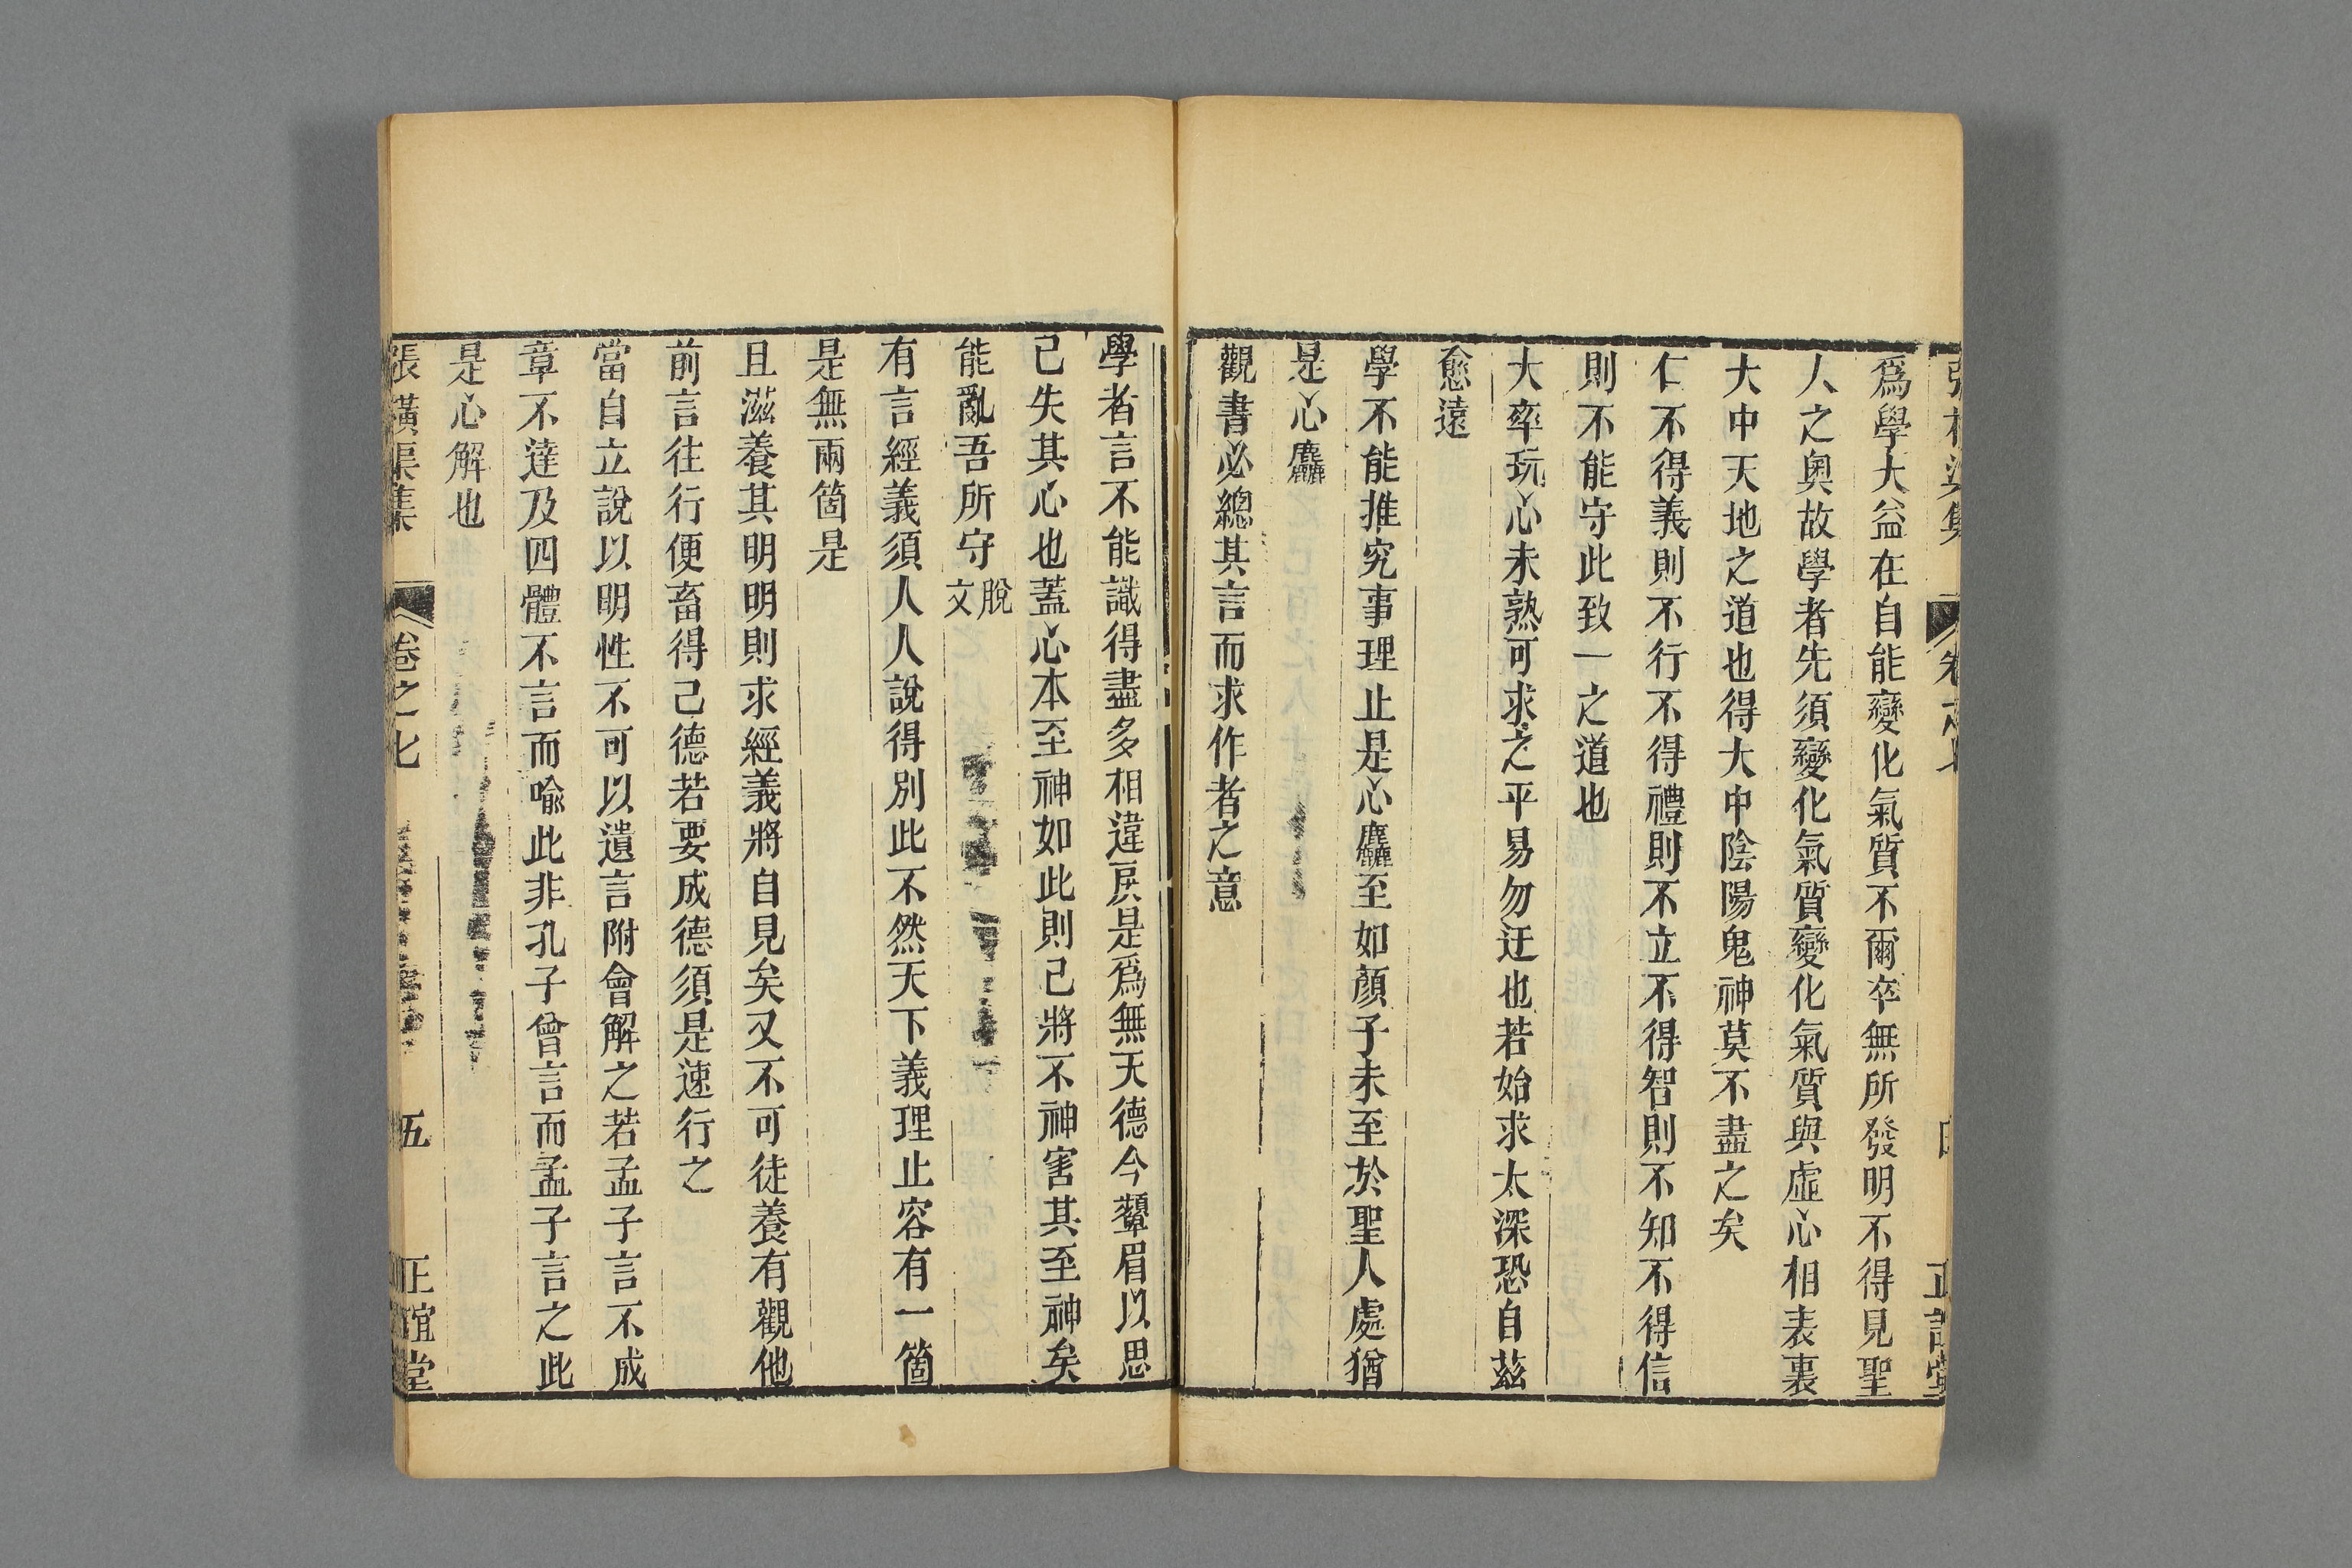 爲學大益在自能變化氣質不爾卒無所發明不得見聖
人之奧故學者先須變化氣質變化氣質與虛心相表裏
大中天地之道也得大中陰陽鬼神莫不盡之矣
仁不得義則不行不得禮則不立不得智則不知不得信
則不能守此致一之道也
大率玩心未熟可求之平易勿迂也若始求太深恐自茲
愈遠
學不能推究事理止是心麤至如顏子未至於聖人處猶
是心麤
觀書必總其言而求作者之意
學者言不能識得盡多相違戾是爲無天德今顰眉以思
己失其心也蓋心本至神如此則己將不神害其至神矣
能亂吾所守脫文
有言經義須人人說得別此不然天下義理止容有一箇
是無兩箇是
且滋養其明明則求經義將自見矣又不可徒養有觀他
前言往行便畜得己德若要成德須是速行之
當自立說以明性不可以遺言附會解之若孟子言不成
章不達及四體不言而喻此非孔子曾言而孟子言之此
是心解也
張橫渠集 卷之七 五 正誼堂